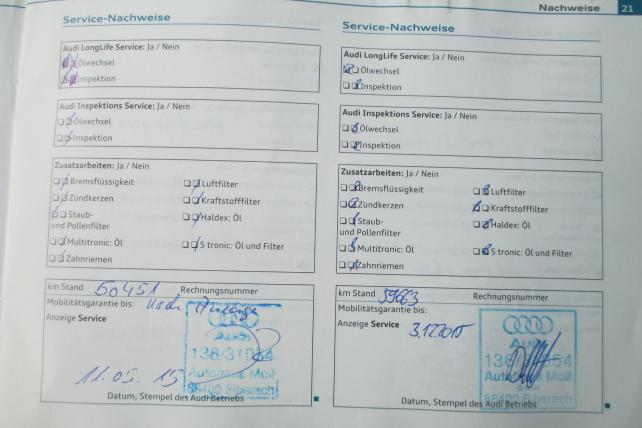 Nachweise 21
Service-Nachweise
Audi LongLife Service: Ja / Nein
Ölwechsel
Inspektion
Audi Inspektions Service: Ja / Nein
Ölwechsel
Inspektion
Zusatzarbeiten: Ja / Nein
Bremsflüssigkeit
Luftfilter
Zündkerzen
Kraftstofffilter
Staub-
und Pollenfilter
Haldex: Öl
Multitronic: Öl
S tronic: Öl und Filter
Zahnriemen
km Stand 60451 Rechnungsnummer
Mobilitätsgarantie bis: nach Anzeige
Anzeige Service
Audi
Autohaus Moll
88400 Biberach
11.05.15
Datum, Stempel des Audi Betriebs
Service-Nachweise
Audi LongLife Service: Ja / Nein
Ölwechsel
Inspektion
Audi Inspektions Service: Ja / Nein
Ölwechsel
Inspektion
Zusatzarbeiten: Ja / Nein
Bremsflüssigkeit
Luftfilter
Zündkerzen
Kraftstofffilter
Staub-
und Pollenfilter
Haldex: Öl
Multitronic: Öl
S tronic: Öl und Filter
Zahnriemen
km Stand 59663 Rechnungsnummer
Mobilitätsgarantie bis:
Anzeige Service
3.12.2015
Audi
Autohaus Moll
88400 Biberach
Datum, Stempel des Audi Betriebs